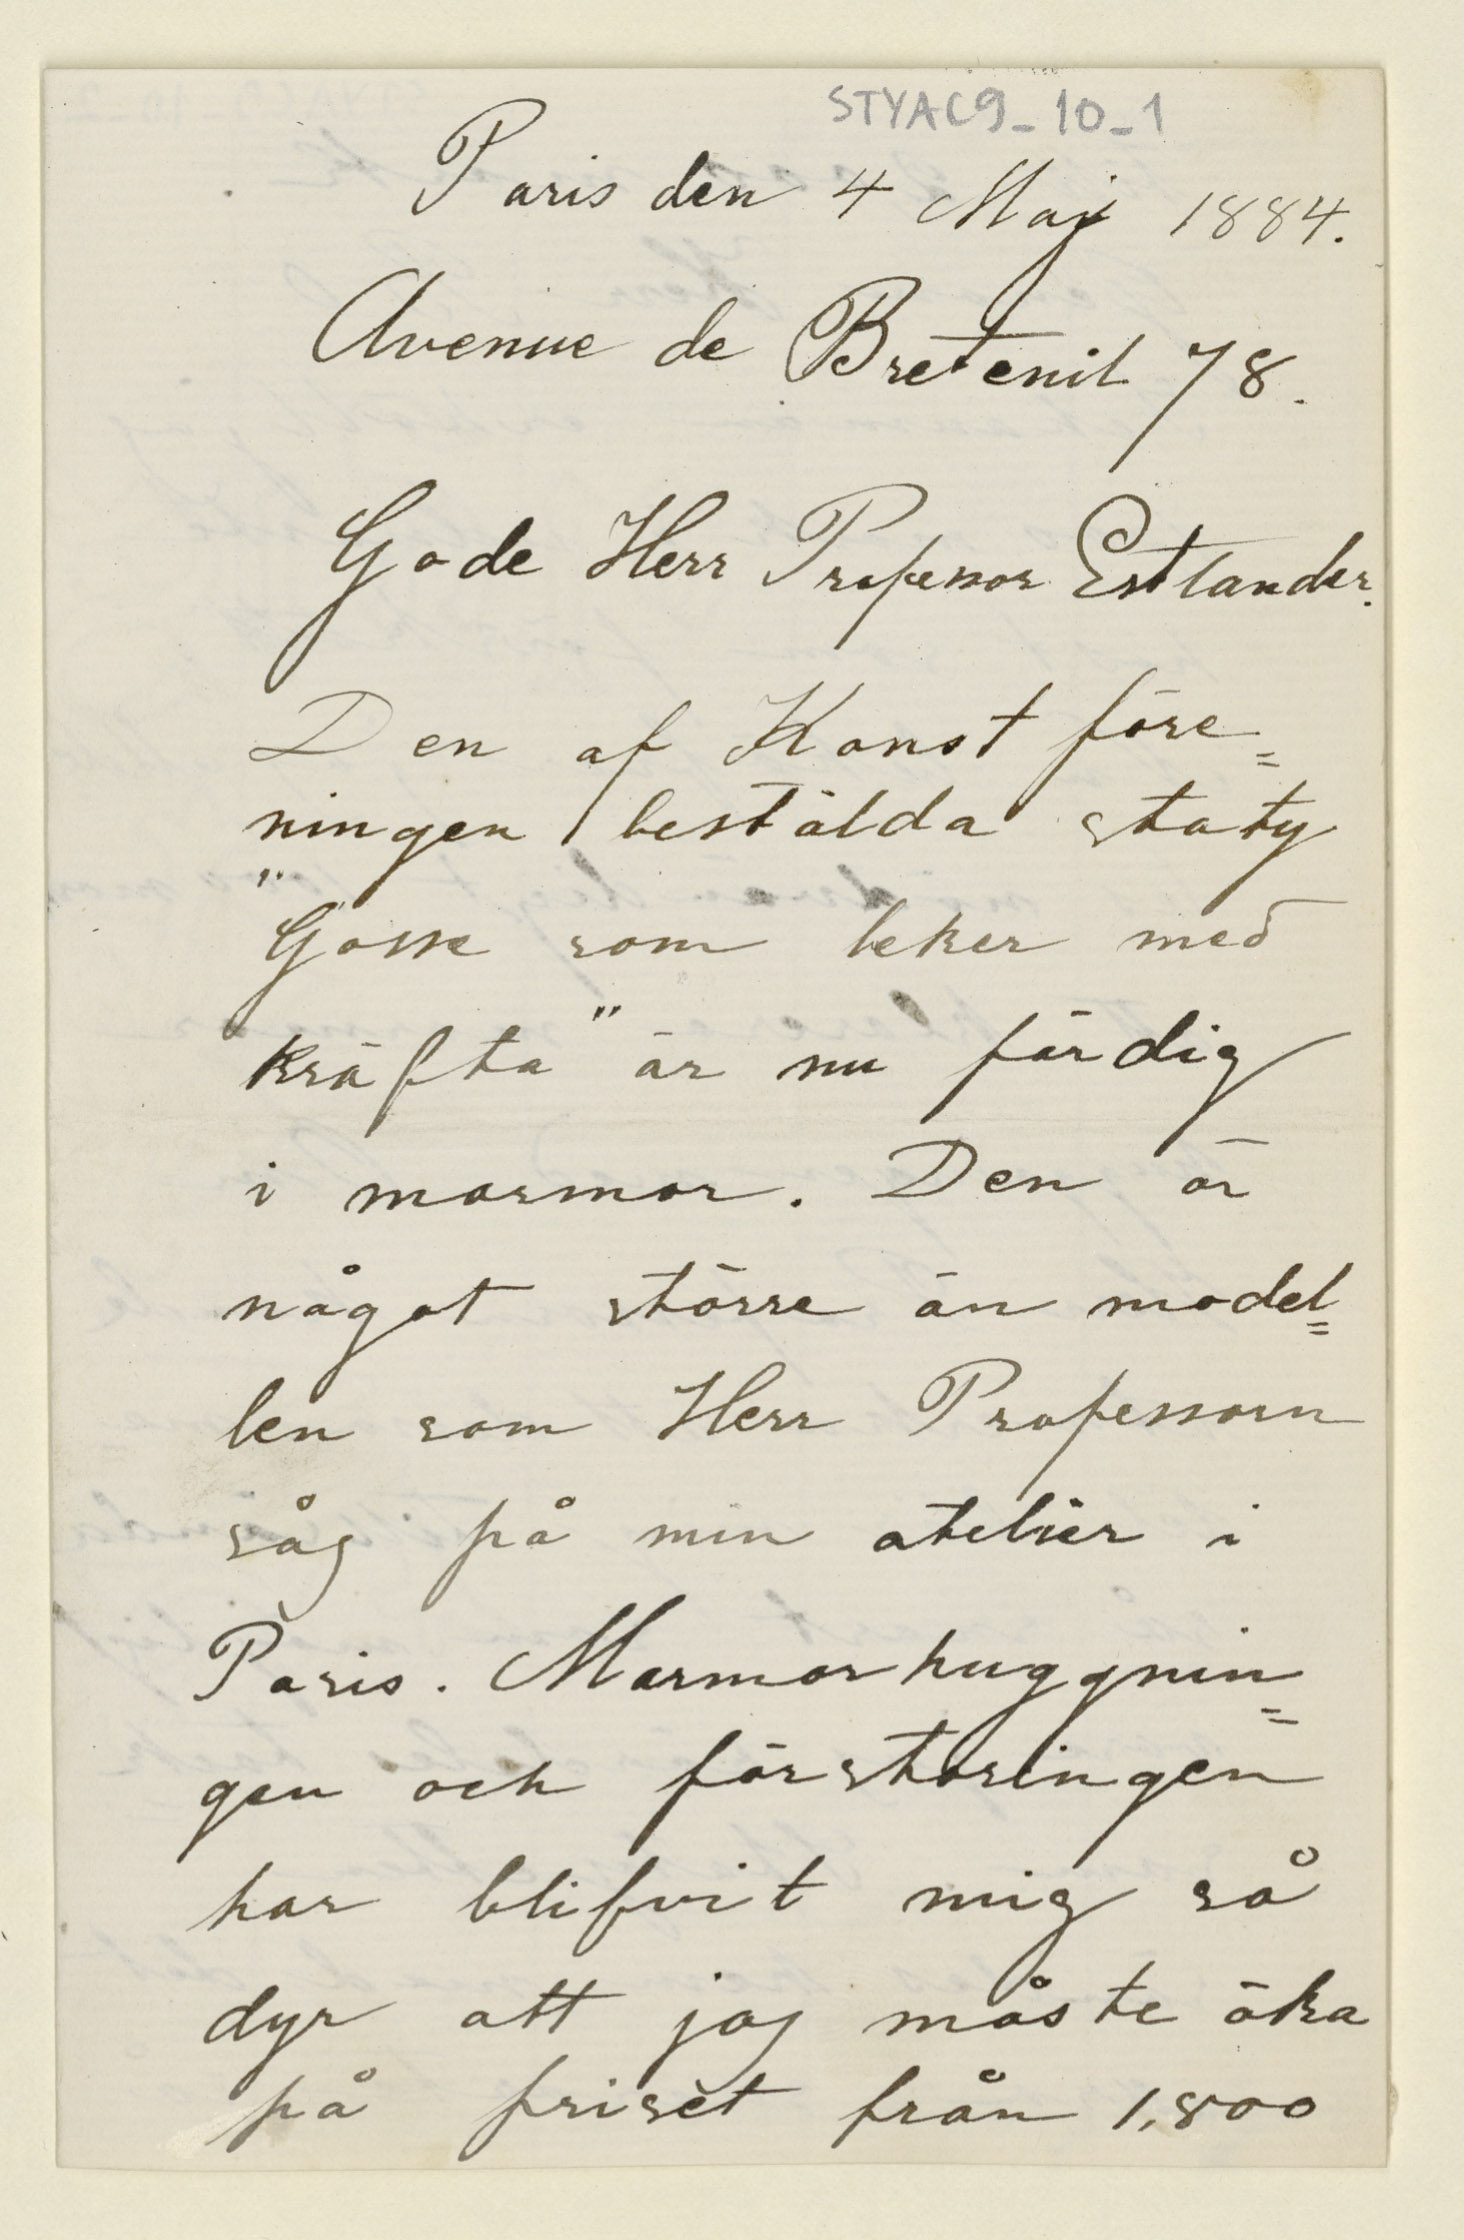 STYAC9_10_1
Paris den 4 Maj 1884.
Avenue de Breteuil 78.
Gode Herr Professor Estlander.
Den af Konst före=
ningen bestälda staty
"Gosse som leker med
kräfta" är nu färdig
i marmor. Den är
något större än model=
len som Herr Professorn
såg på min atelier i
Paris. Marmorhuggnin=
gen och förstoringen
har blifvit mig så
dyr att jag måste öka
på priset från 1,800